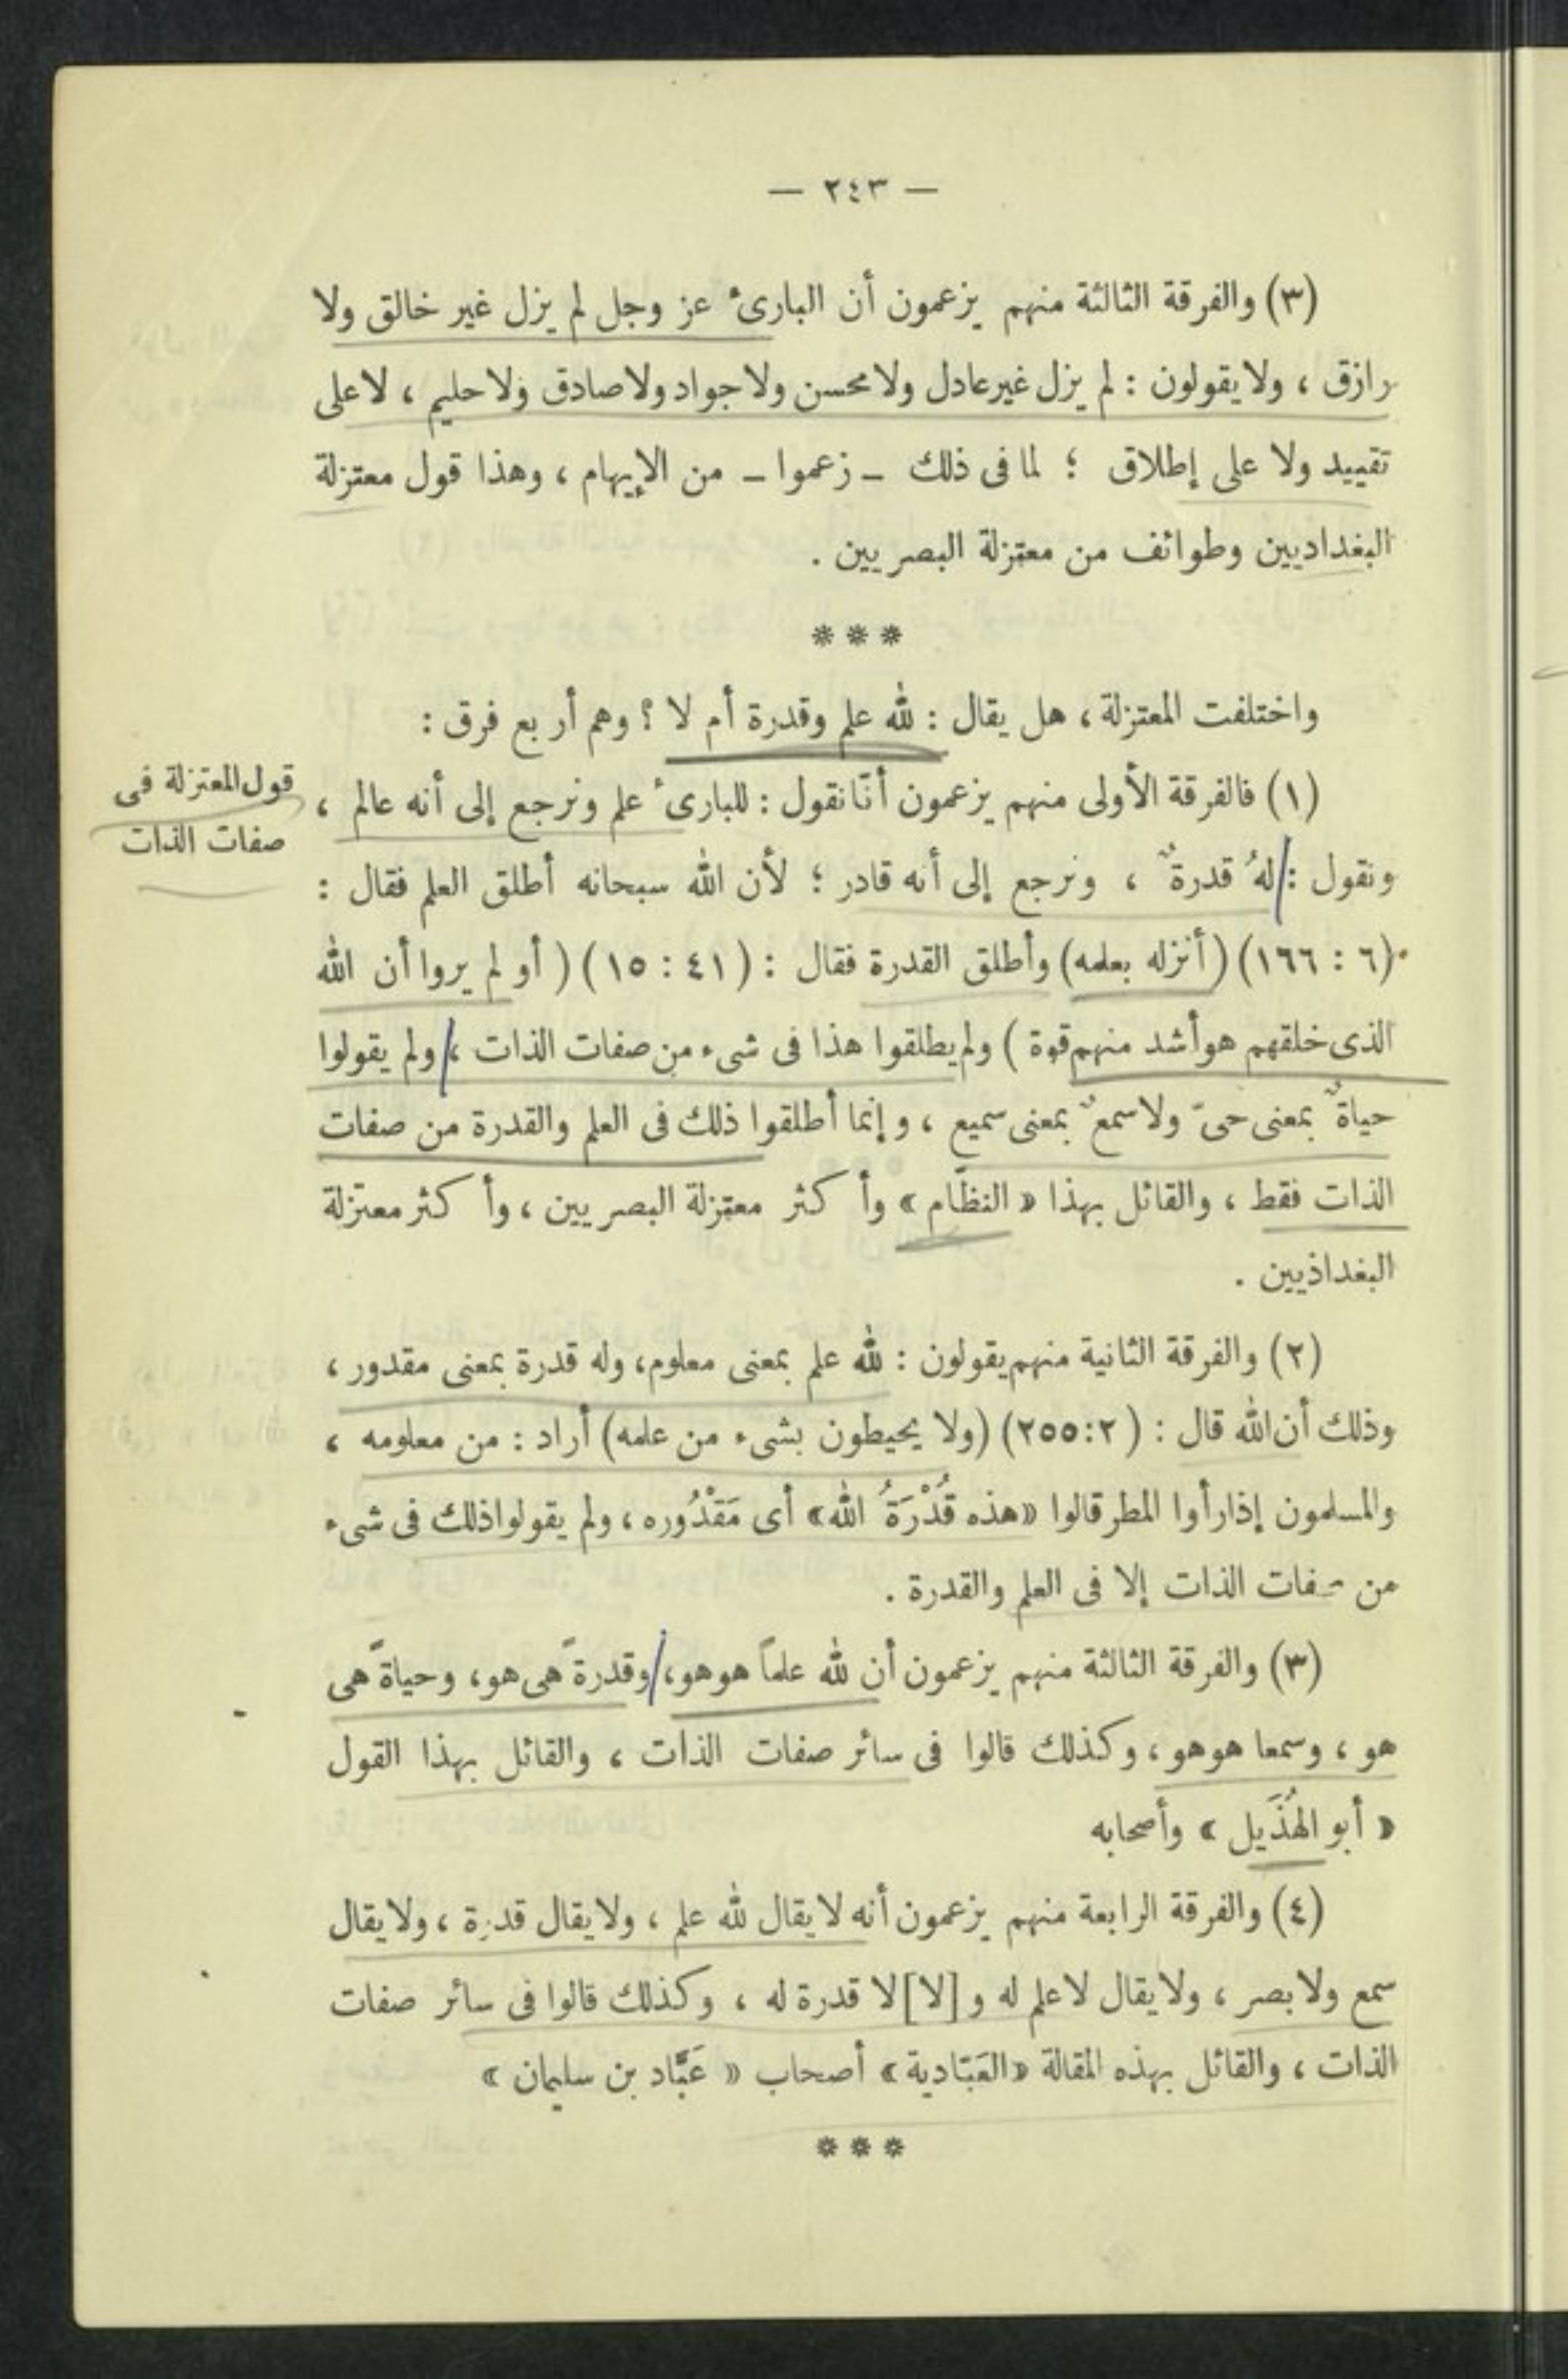 — ٢٤٣ —
(٣) والفرقة الثالثة منهم يزعمون أن البارئ عز وجل لم يزل غير خالق ولا
رازق ، ولا يقولون : لم يزل غير عادل ولا محسن ولا جواد ولا صادق ولا حليم ، لا على
تقييد ولا على إطلاق ؛ لما فى ذلك ــ زعموا ــ من الإيهام ، وهذا قول معتزلة
البغداديين وطوائف من معتزلة البصريين .
***
واختلفت المعتزلة ، هل يقال : لله علم وقدرة أم لا ؟ وهم أربع فرق :
قول المعتزلة فى
صفات الذات
(١) فالفرقة الأولى منهم يزعمون أنّا نقول : للبارئ علم ونرجع إلى أنه عالم ،
ونقول : لهُ قدرةٌ ، ونرجع إلى أنه قادر ؛ لأن الله سبحانه أطلق العلم فقال :
(٦ : ١٦٦) (أنزله بعلمه) وأطلق القدرة فقال : (٤١ : ١٥) ( أو لم يروا أن الله
الذى خلقهم هو أشد منهم قوة ) ولم يطلقوا هذا فى شىء من صفات الذات ، ولم يقولوا
حياةٌ بمعنى حىّ ولا سمعٌ بمعنى سميع ، وإنما أطلقوا ذلك فى العلم والقدرة من صفات
الذات فقط ، والقائل بهذا « النظّام » وأكثر معتزلة البصريين ، وأكثر معتزلة
البغداذيين .
(٢) والفرقة الثانية منهم يقولون : لله علم بمعنى معلوم، وله قدرة بمعنى مقدور ،
وذلك أن الله قال : (٢:٢٥٥) (ولا يحيطون بشىء من علمه) أراد : من معلومه ،
والمسلمون إذا رأوا المطر قالوا «هذه قُدْرَةُ الله» أى مَقْدُوره ، ولم يقولوا ذلك فى شىء
من صفات الذات إلا فى العلم والقدرة .
(٣) والفرقة الثالثة منهم يزعمون أن لله علماً هو هو، وقدرةً هى هو، وحياةً هى
هو ، وسمعا هو هو ، وكذلك قالوا فى سائر صفات الذات ، والقائل بهذا القول
« أبو الهُذَيل » وأصحابه
(٤) والفرقة الرابعة منهم يزعمون أنه لا يقال لله علم ، ولا يقال قدرة ، ولا يقال
سمع ولا بصر ، ولا يقال لا علم له و [لا] لا قدرة له ، وكذلك قالوا فى سائر صفات
الذات ، والقائل بهذه المقالة «العَبّادية» أصحاب « عَبَّاد بن سليمان »
***